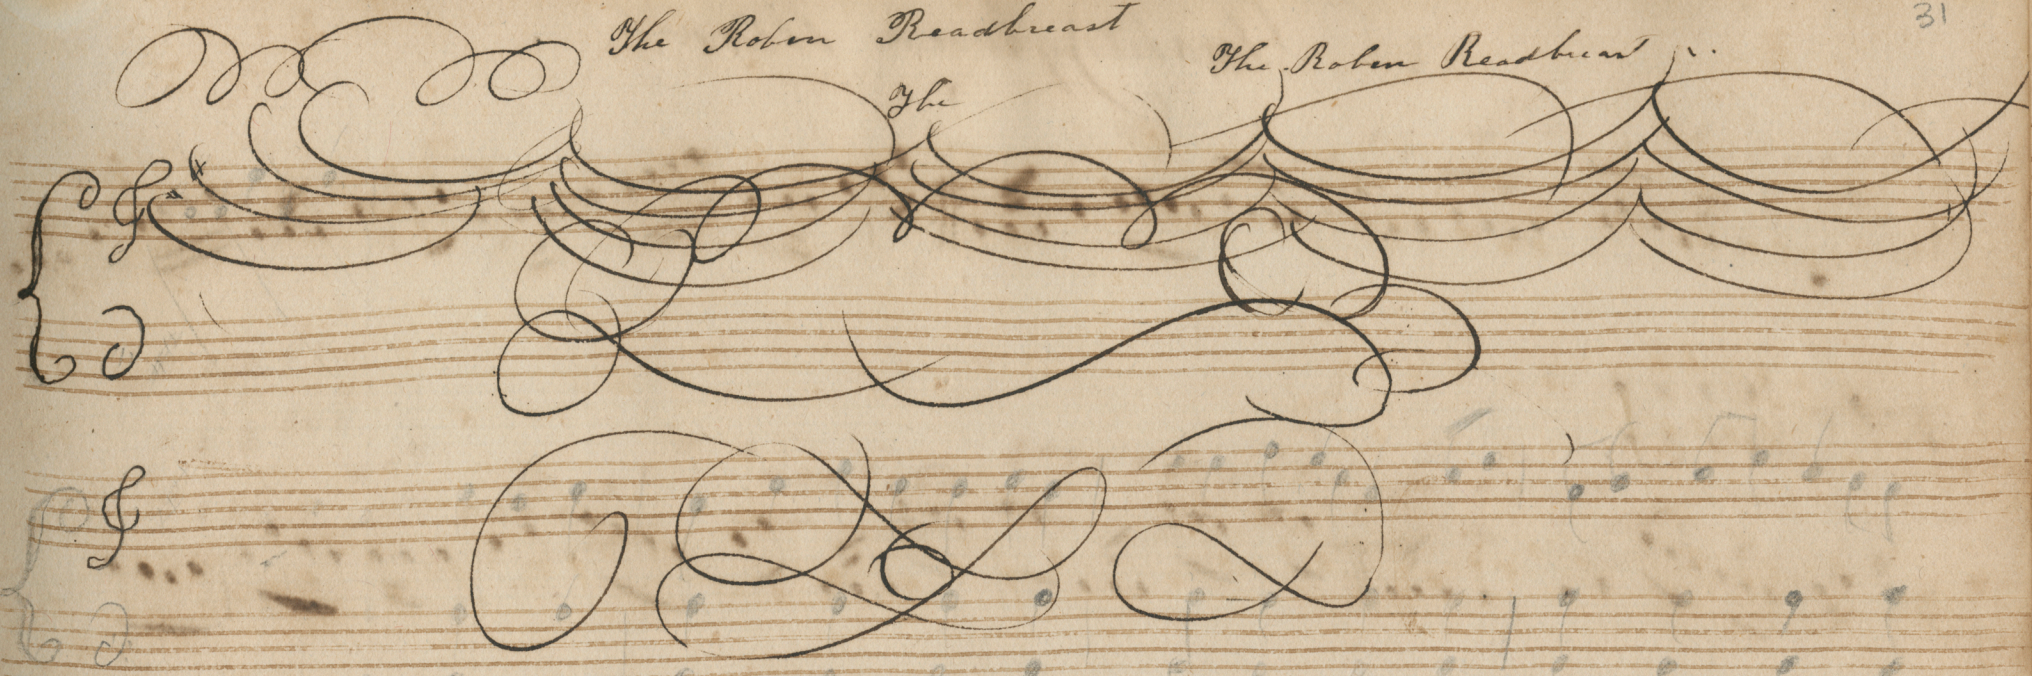 31
The Roben Readbreast
The Roben Readbreast
The